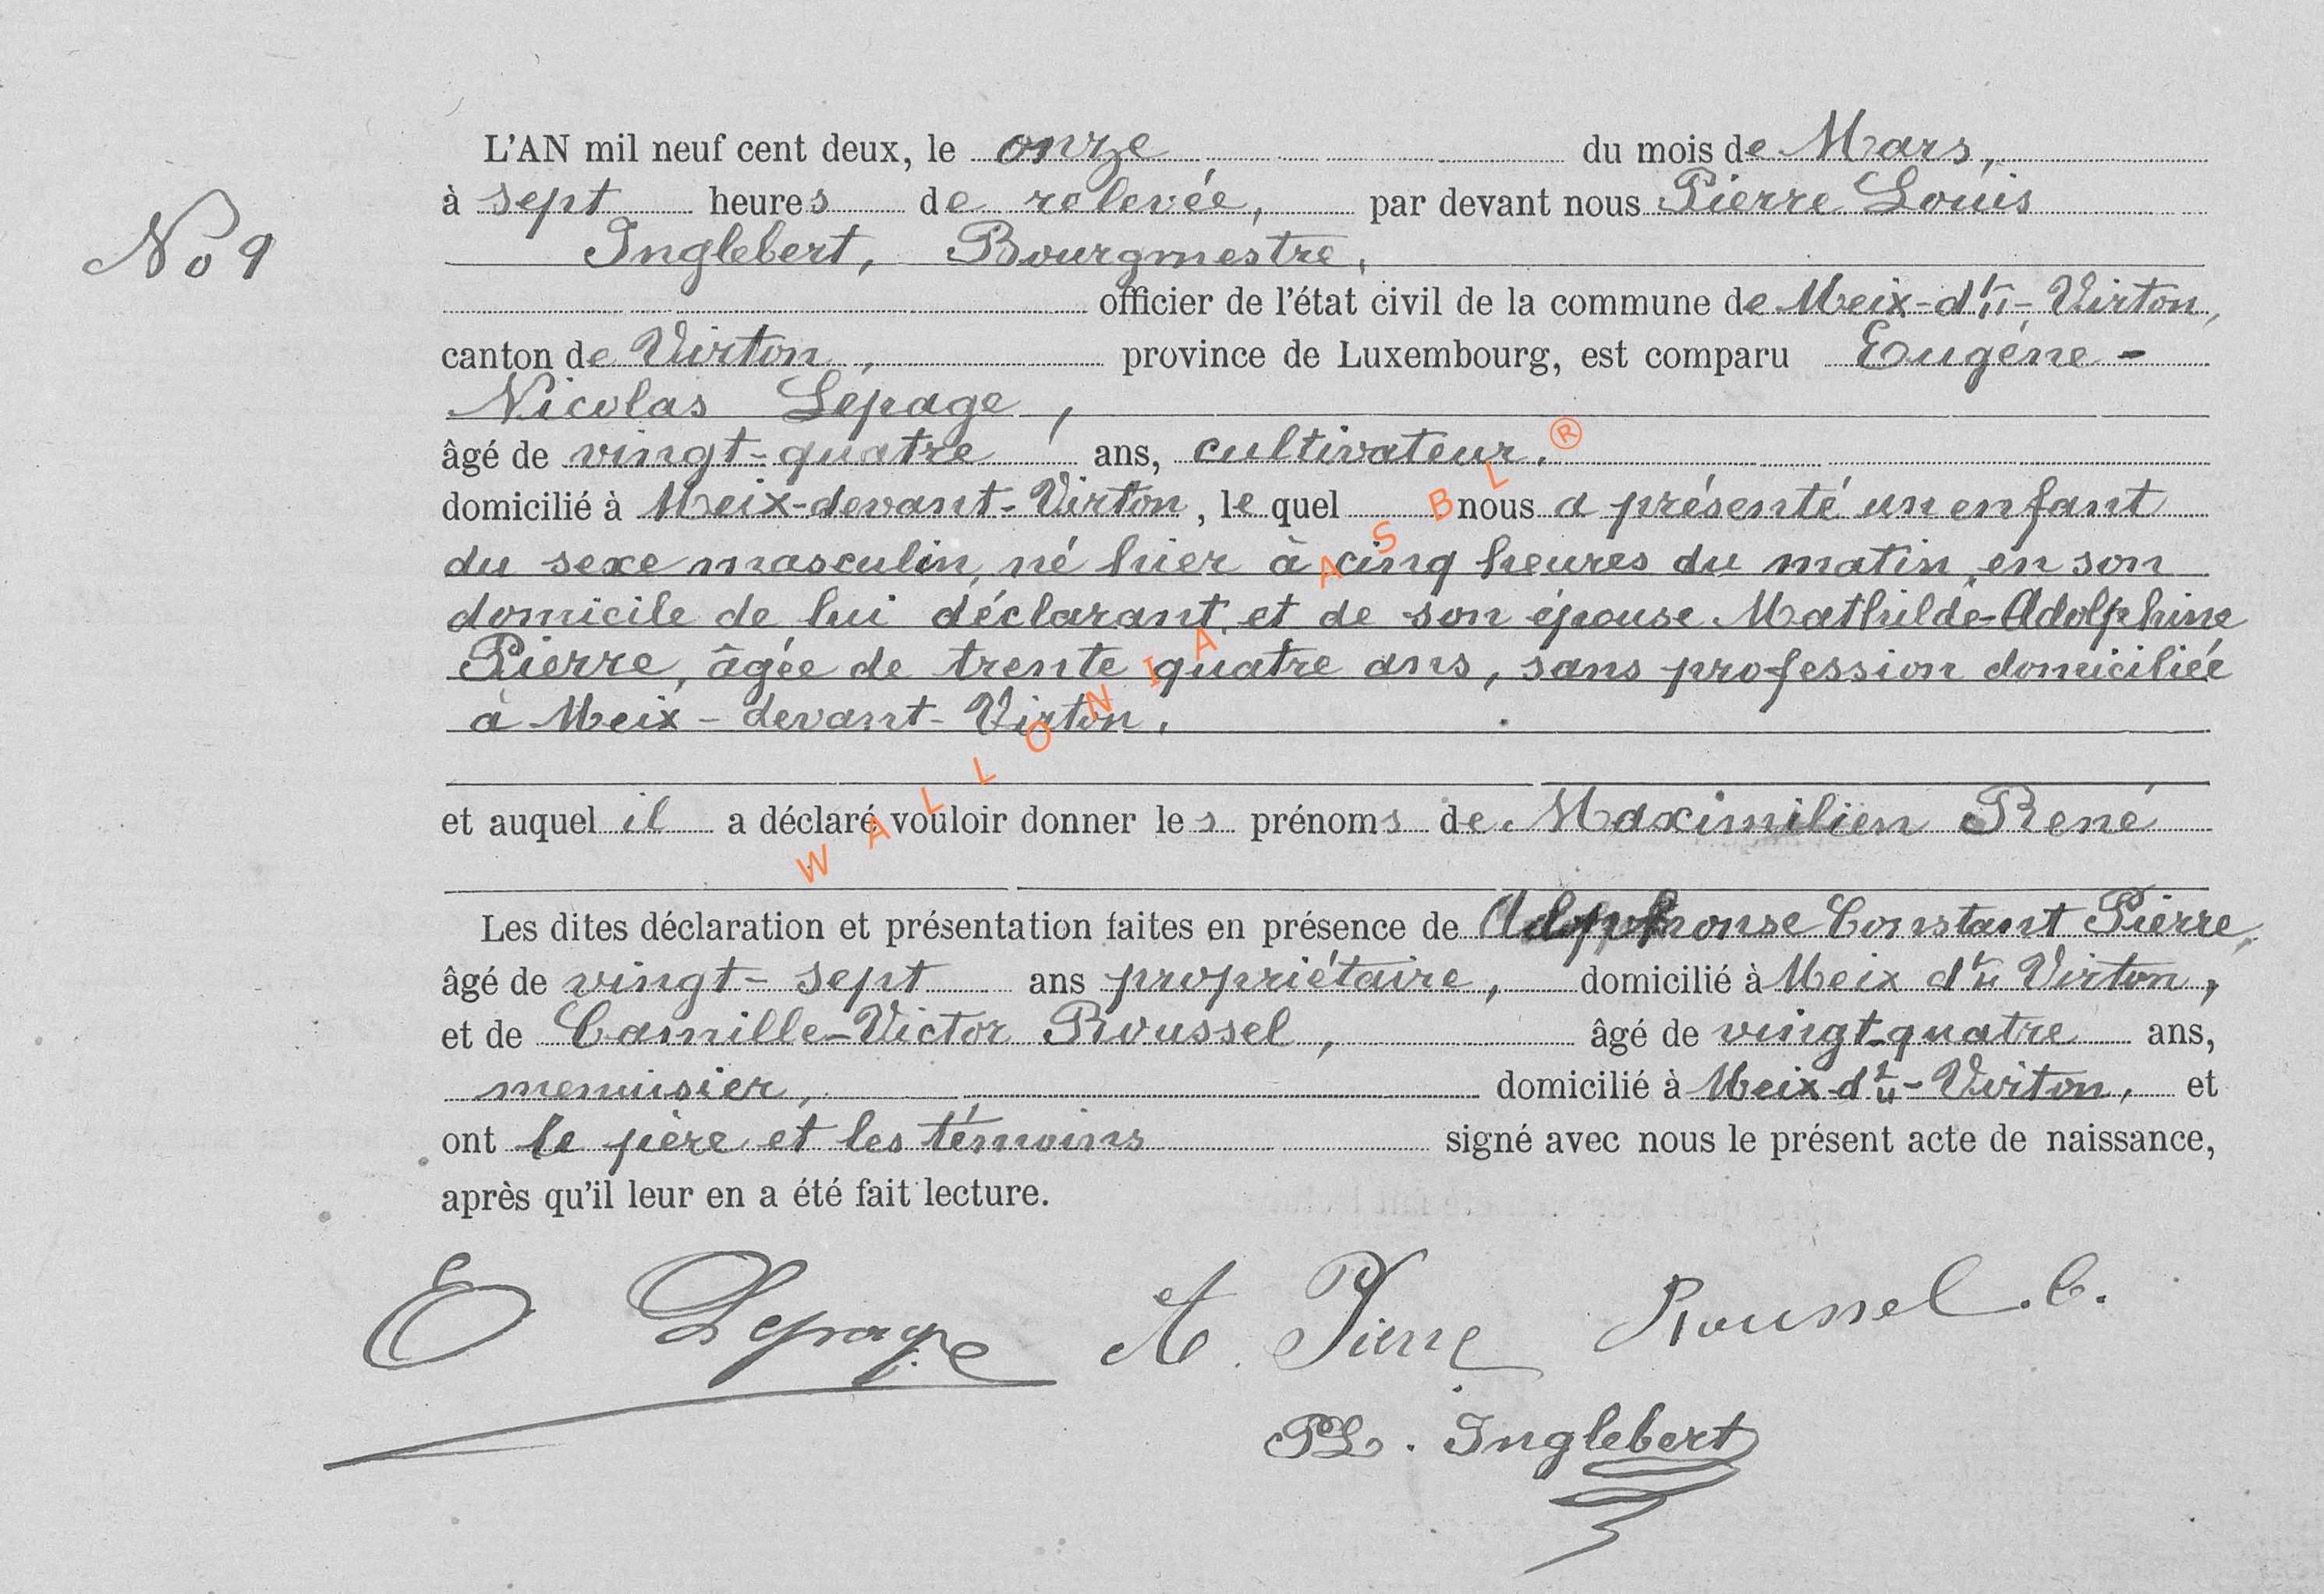 L'AN mil neuf cent deux, le onze du mois de Mars,
à sept heures de relevée, par devant nous Pierre Louis
No 9
Inglebert, Bourgmestre,
officier de l'état civil de la commune de Meix-dt-Virton,
canton de Virton, province de Luxembourg, est comparu Eugène-
Nicolas Lepage,
âgé de vingt-quatre ans, cultivateur.
domicilié à Meix-devant-Virton, le quel nous a présenté un enfant
du sexe masculin, né hier à cinq heures du matin, en son
domicile de lui déclarant et de son épouse Mathilde-Adolphine
Pierre, âgée de trente quatre ans, sans profession domiciliée
à Meix-devant-Virton.
et auquel il a déclaré vouloir donner les prénoms de Maximilien René
Les dites déclaration et présentation faites en présence de Constant Pierre,
âgé de vingt-sept ans propriétaire, domicilié à Meix dt Virton,
et de Camille-Victor Roussel, âgé de vingt-quatre ans,
menuisier, domicilié à Meix-dt-Virton, et
ont le père et les témoins signé avec nous le présent acte de naissance,
après qu'il leur en a été fait lecture.
E Lepage A. Pierre Roussel.C.
PL. Inglebert
WALLONIA ASBL®